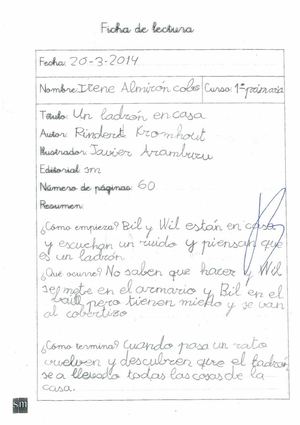 Ficha de lectura
Fecha: 20-3-2014
Nombre: Irene Almirón cobo Curso: 1º primaria
Título: Un ladrón en casa
Autor: Rindert Kromhout
Ilustrador: Javier Aramburu
Editorial: sm
Número de páginas: 60
Resumen:
¿Como empieza? Bil y Wil están en casa
y escuchan un ruido y piensan que
es un ladrón.
¿Que ocurre? No saben que hacer y Wil
se mete en el armario y Bil en el
baúl pero tienen miedo y se van
al cobertizo.
¿Cómo termina? Cuando pasa un rato
vuelven y descubren que el ladrón
se a llevado todas las cosas de la
casa.
sm